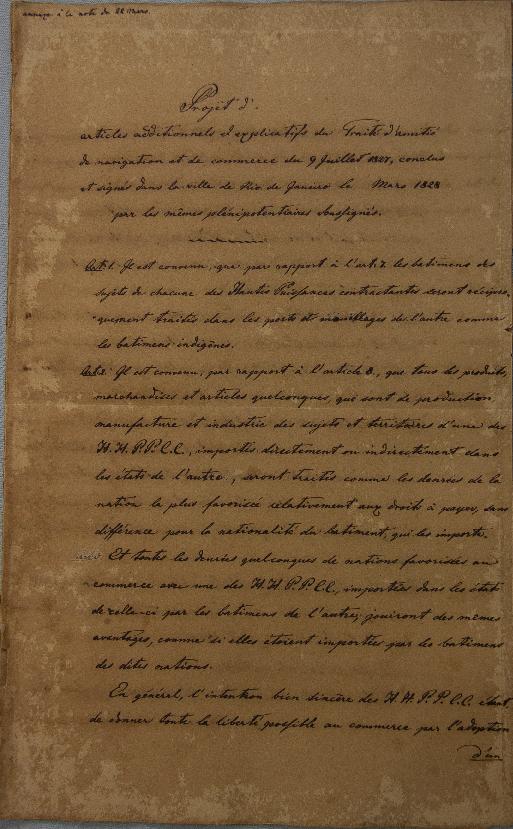 annexe à la note du 22 Mars.
Projèt d'
articles additionnels et explicatifs du Traité d'amitié
de navigation et de commerce du 9 Juillet 1827, conclus
et signés dans la ville de Rio de Janeiro le Mars 1828
par les mêmes plénipotentiaires soussignés.
Art: 1. Il est convenu, que par rapport à l'art: 7. les batimens des
sujets de chacune des Hautes Puissances contractantes seront récipro-
quement traités dans les ports et mouillages de l'autre comme
les batimens indigènes.
Art: 2. Il est convenu, par rapport à l'article 8., que tous les produits,
marchandises et articles quelconques, qui sont de production,
manufacture et industrie des sujets et territoires d'une des
H. H. P. P. C. C., importés directement ou indirectement dans
les états de l'autre, seront traités comme les denrées de la
nation la plus favorisée relativement aux droits à payer, sans
différence pour la nationalité du batiment, qui les importe.
Et toutes les denrées quelconques de nations favorisées au
commerce avec une des H. H. P. P. C. C., importées dans les états
de celle-ci par les batimens de l'autre, jouiront des mêmes
aventages, comme si elles étoient importées par les batimens
des dites nations.
En général, l'intention bien sincère des H. H. P. P. C. C. étant,
de donner toute la liberté possible au commerce par l'adoption
d'un